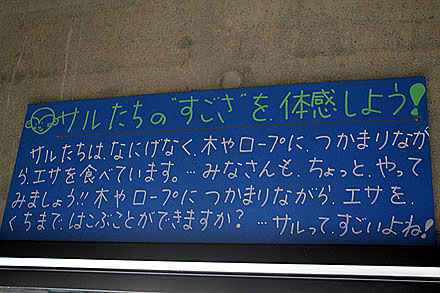 サルたちの"すごさ"を、体感しよう!
サルたちは、なにげなく、木やロープに、つかまりなが
ら、エサを食べています。…みなさんも、ちょっと、やって
みましょう!!木やロープにつかまりながら、エサを、
くちまで、はこぶことができますか? …サルって、すごいよね!